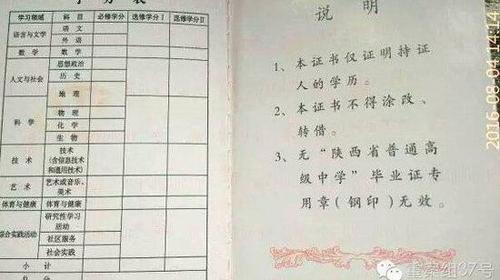 学分表
学习领域 科目 必修学分 选修学分Ⅰ 选修学分Ⅱ
语言与文学 语文
外语
数学 数学
人文与社会 思想政治
历史
地理
科学 物理
化学
生物
技术 技术
(含信息技术
和通用技术)
艺术 艺术或音乐、
美术
体育与健康 体育与健康
综合实践活动 研究性学习
活动
社区服务
社会实践
小计
总分
说明
1、本证书仅证明持证
人的学历。
2、本证书不得涂改、
转借。
3、无“陕西省普通高
级中学”毕业证专
用章(钢印)无效。
重案组37号